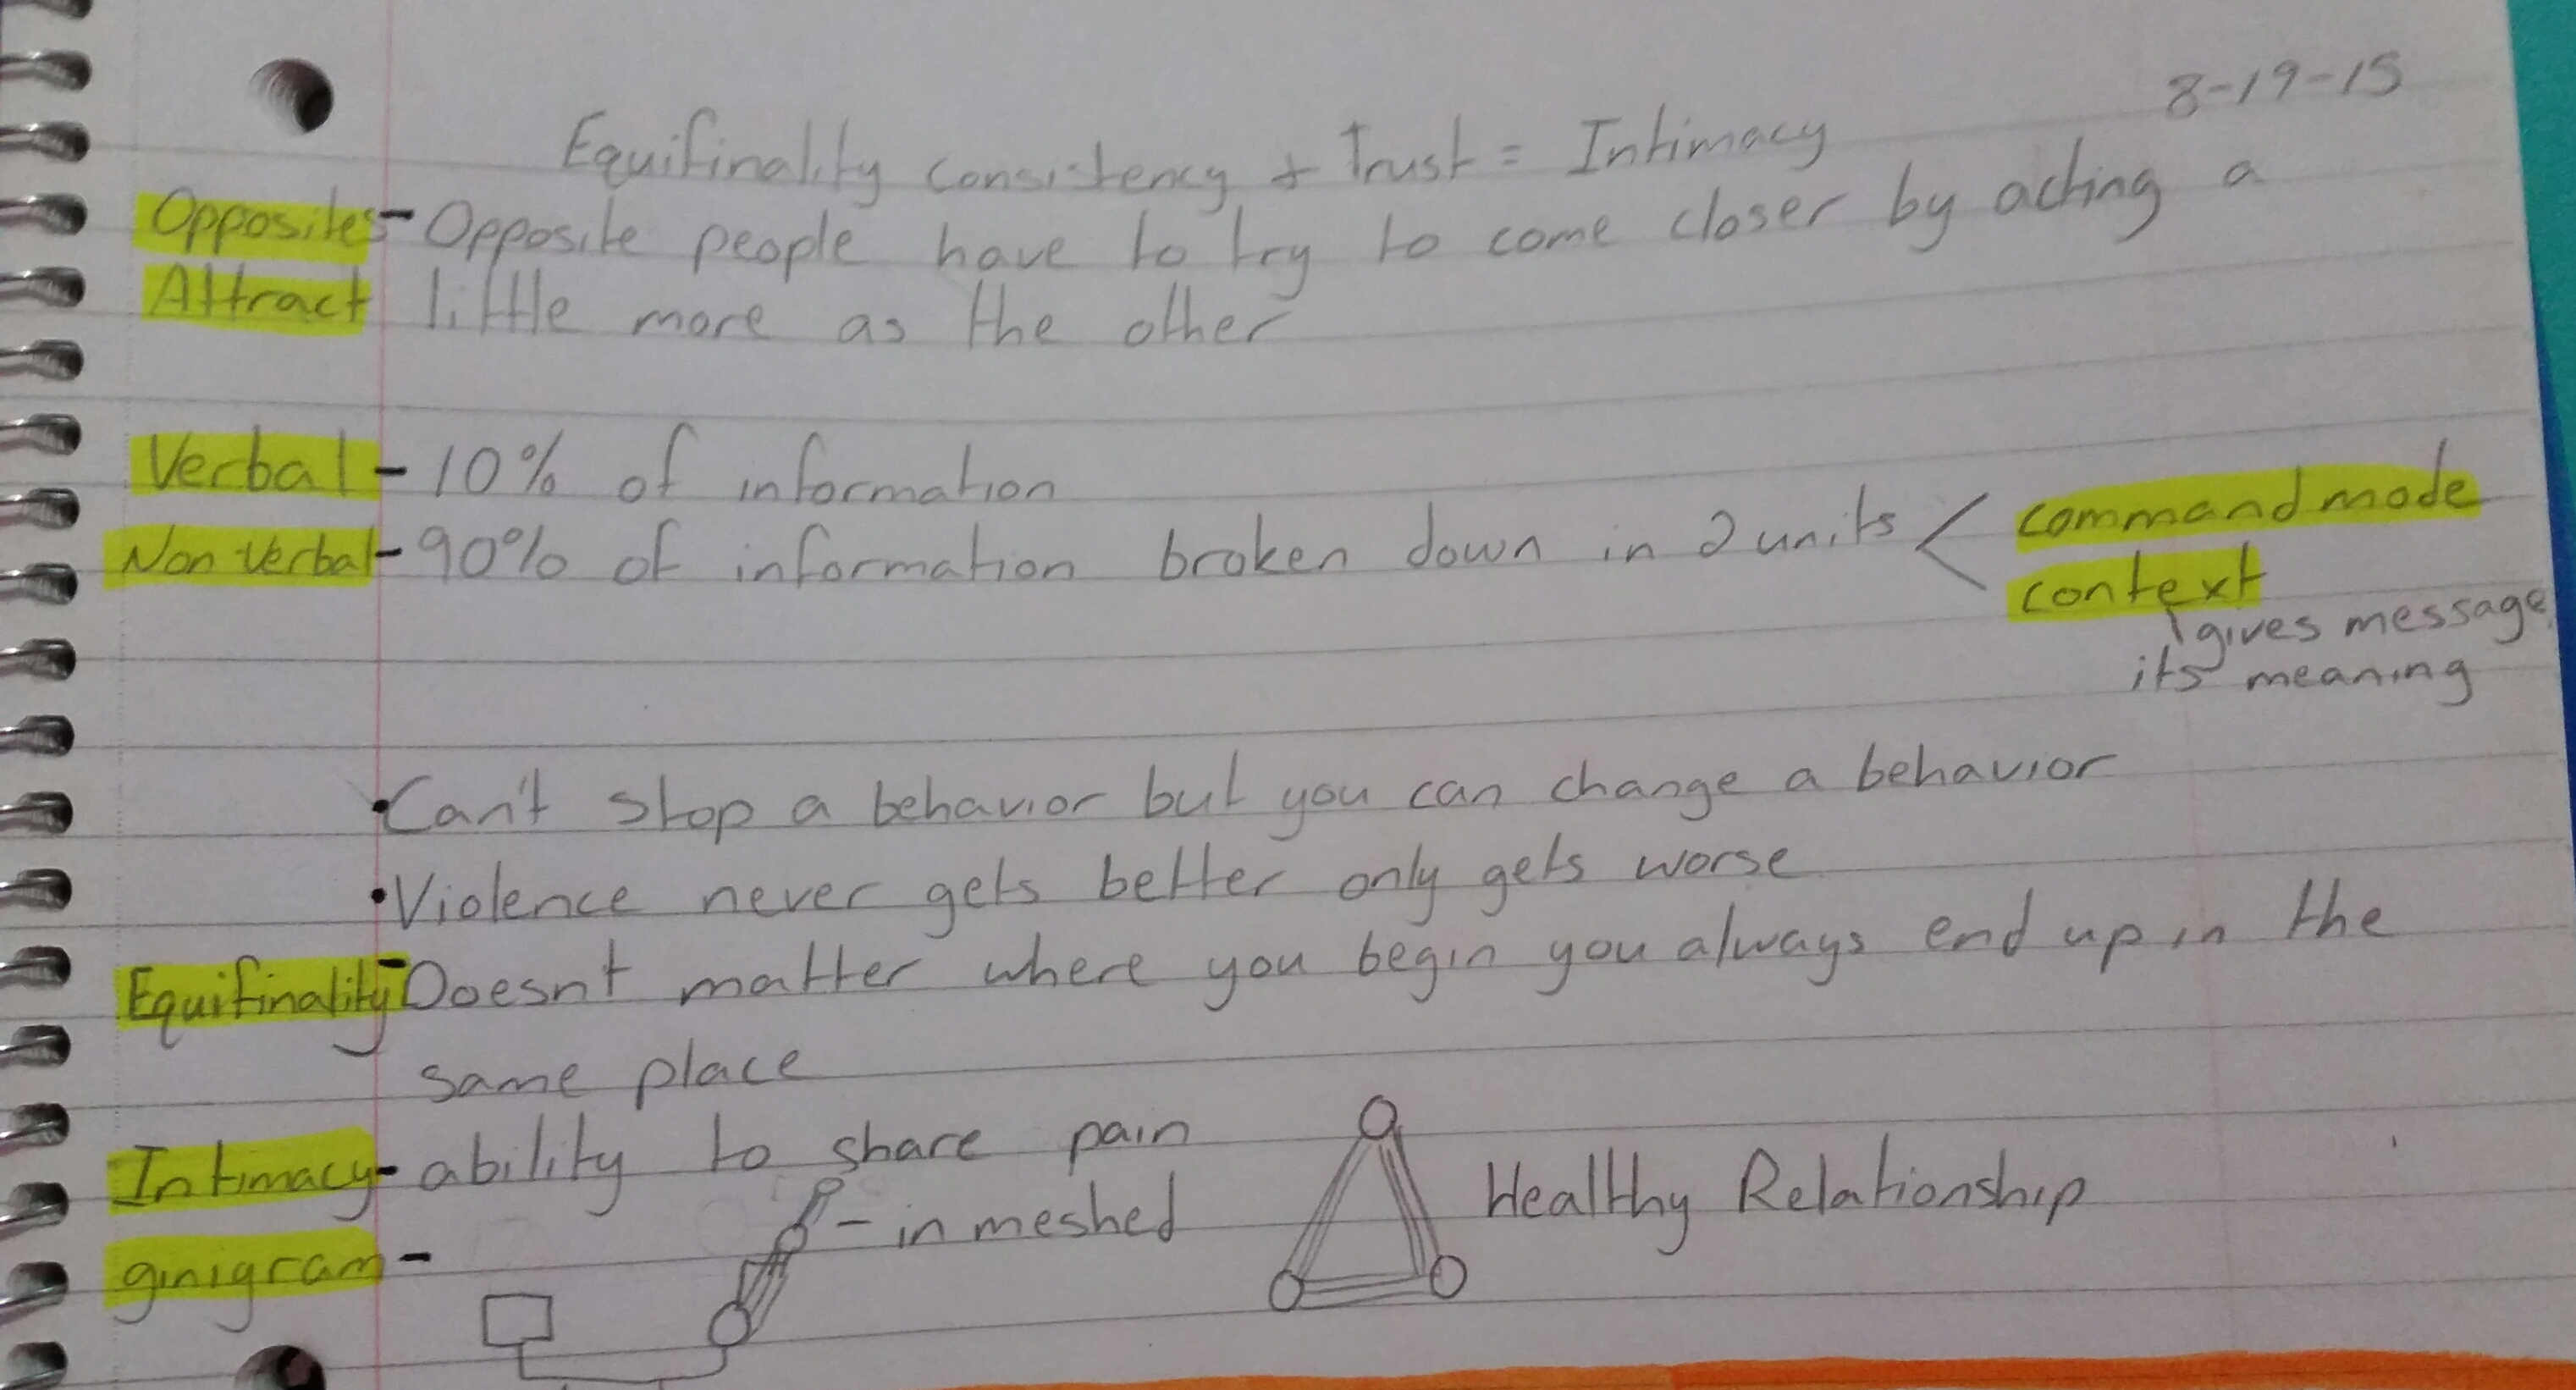 8-19-15
Equifinality consistency + Trust = Intimacy
Opposites - Opposite people have to try to come closer by acting a
Attract little more as the other
Verbal - 10% of information
Non verbal - 90% of information broken down in 2 units < command mode
context
gives message
its meaning
• Can't stop a behavior but you can change a behavior
• Violence never gets better only gets worse
Equifinality - Doesnt matter where you begin you always end up in the
same place
Intimacy - ability to share pain
- in meshed Healthy Relationship
ginigram -